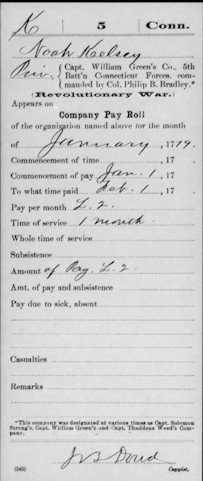 K 5 Conn.
Noah Kelsey
Priv., Capt. William Green's Co., 5th
Batt'n Connecticut Forces, com-
manded by Col. Philip B. Bradley.*
(Revolutionary War.)
Appears on
Company Pay Roll
of the organization named above for the month
of January, 1779.
Commencement of time , 17 .
Commencement of pay Jan. 1, 17 .
To what time paid Feb. 1, 17 .
Pay per month £. 2.
Time of service 1 month.
Whole time of service
Subsistence
Amount of Pay. £. 2.
Amt. of pay and subsistence
Pay due to sick, absent
Casualties
Remarks
*This company was designated at various times as Capt. Solomon
Strong's, Capt. William Green's and Capt. Thaddeus Weed's Com-
pany.
(545) Copyist.